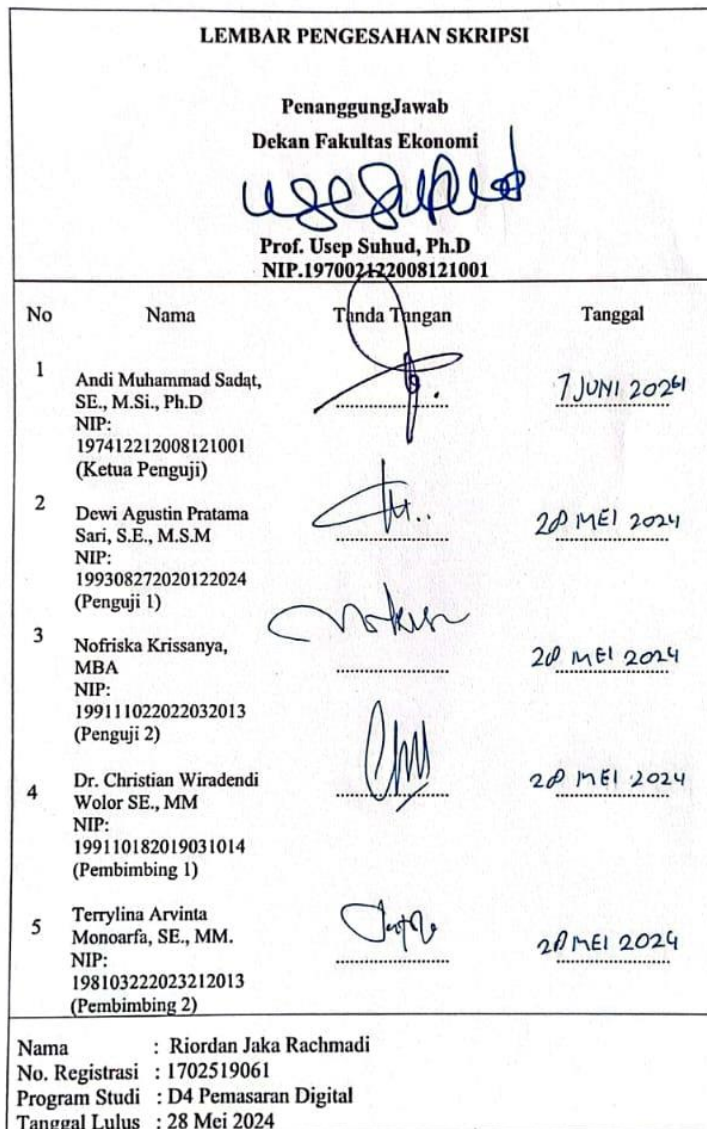 LEMBAR PENGESAHAN SKRIPSI
PenanggungJawab
Dekan Fakultas Ekonomi
Prof. Usep Suhud, Ph.D
NIP.197002122008121001
No Nama Tanda Tangan Tanggal
1 Andi Muhammad Sadat,
SE., M.Si., Ph.D
NIP:
197412212008121001
(Ketua Penguji)
7 JUNI 2024
2 Dewi Agustin Pratama
Sari, S.E., M.S.M
NIP:
199308272020122024
(Penguji 1)
28 MEI 2024
3 Nofriska Krissanya,
MBA
NIP:
199111022022032013
(Penguji 2)
28 MEI 2024
4 Dr. Christian Wiradendi
Wolor SE., MM
NIP:
199110182019031014
(Pembimbing 1)
28 MEI 2024
5 Terrylina Arvinta
Monoarfa, SE., MM.
NIP:
198103222023212013
(Pembimbing 2)
28 MEI 2024
Nama : Riordan Jaka Rachmadi
No. Registrasi : 1702519061
Program Studi : D4 Pemasaran Digital
Tanggal Lulus : 28 Mei 2024